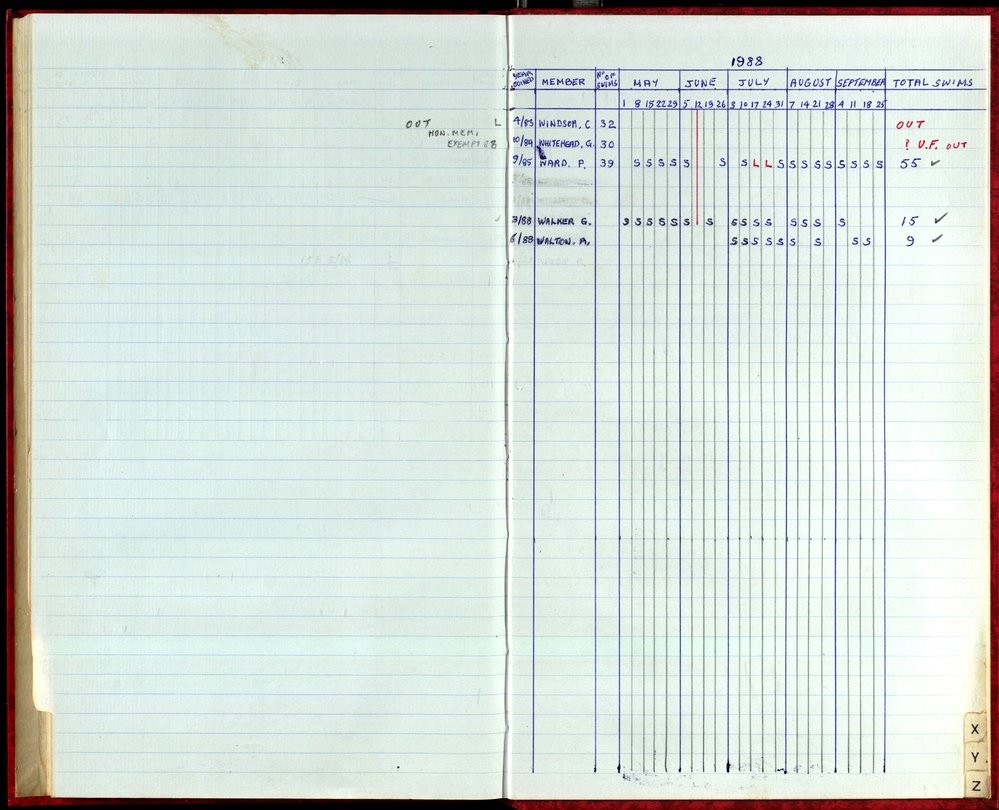 1988
YEAR JOINED MEMBER Nº OF SWIMS MAY JUNE JULY AUGUST SEPTEMBER TOTAL SWIMS
1 8 15 22 29 5 12 19 26 3 10 17 24 31 7 14 21 28 4 11 18 25
OUT L 4/85 WINDSOR, C 32 OUT
HON. MEM. 10/84 WHITEHEAD, G. 30 ? U.F. OUT
EXEMPT 88
9/85 WARD. P. 39 S S S S S S S L L S S S S S S S S S 55 ✓
3/88 WALKER G. S S S S S S S S S S S S S S S 15 ✓
6/88 WALTON. A. S S S S S S S S S 9 ✓
X
Y
Z